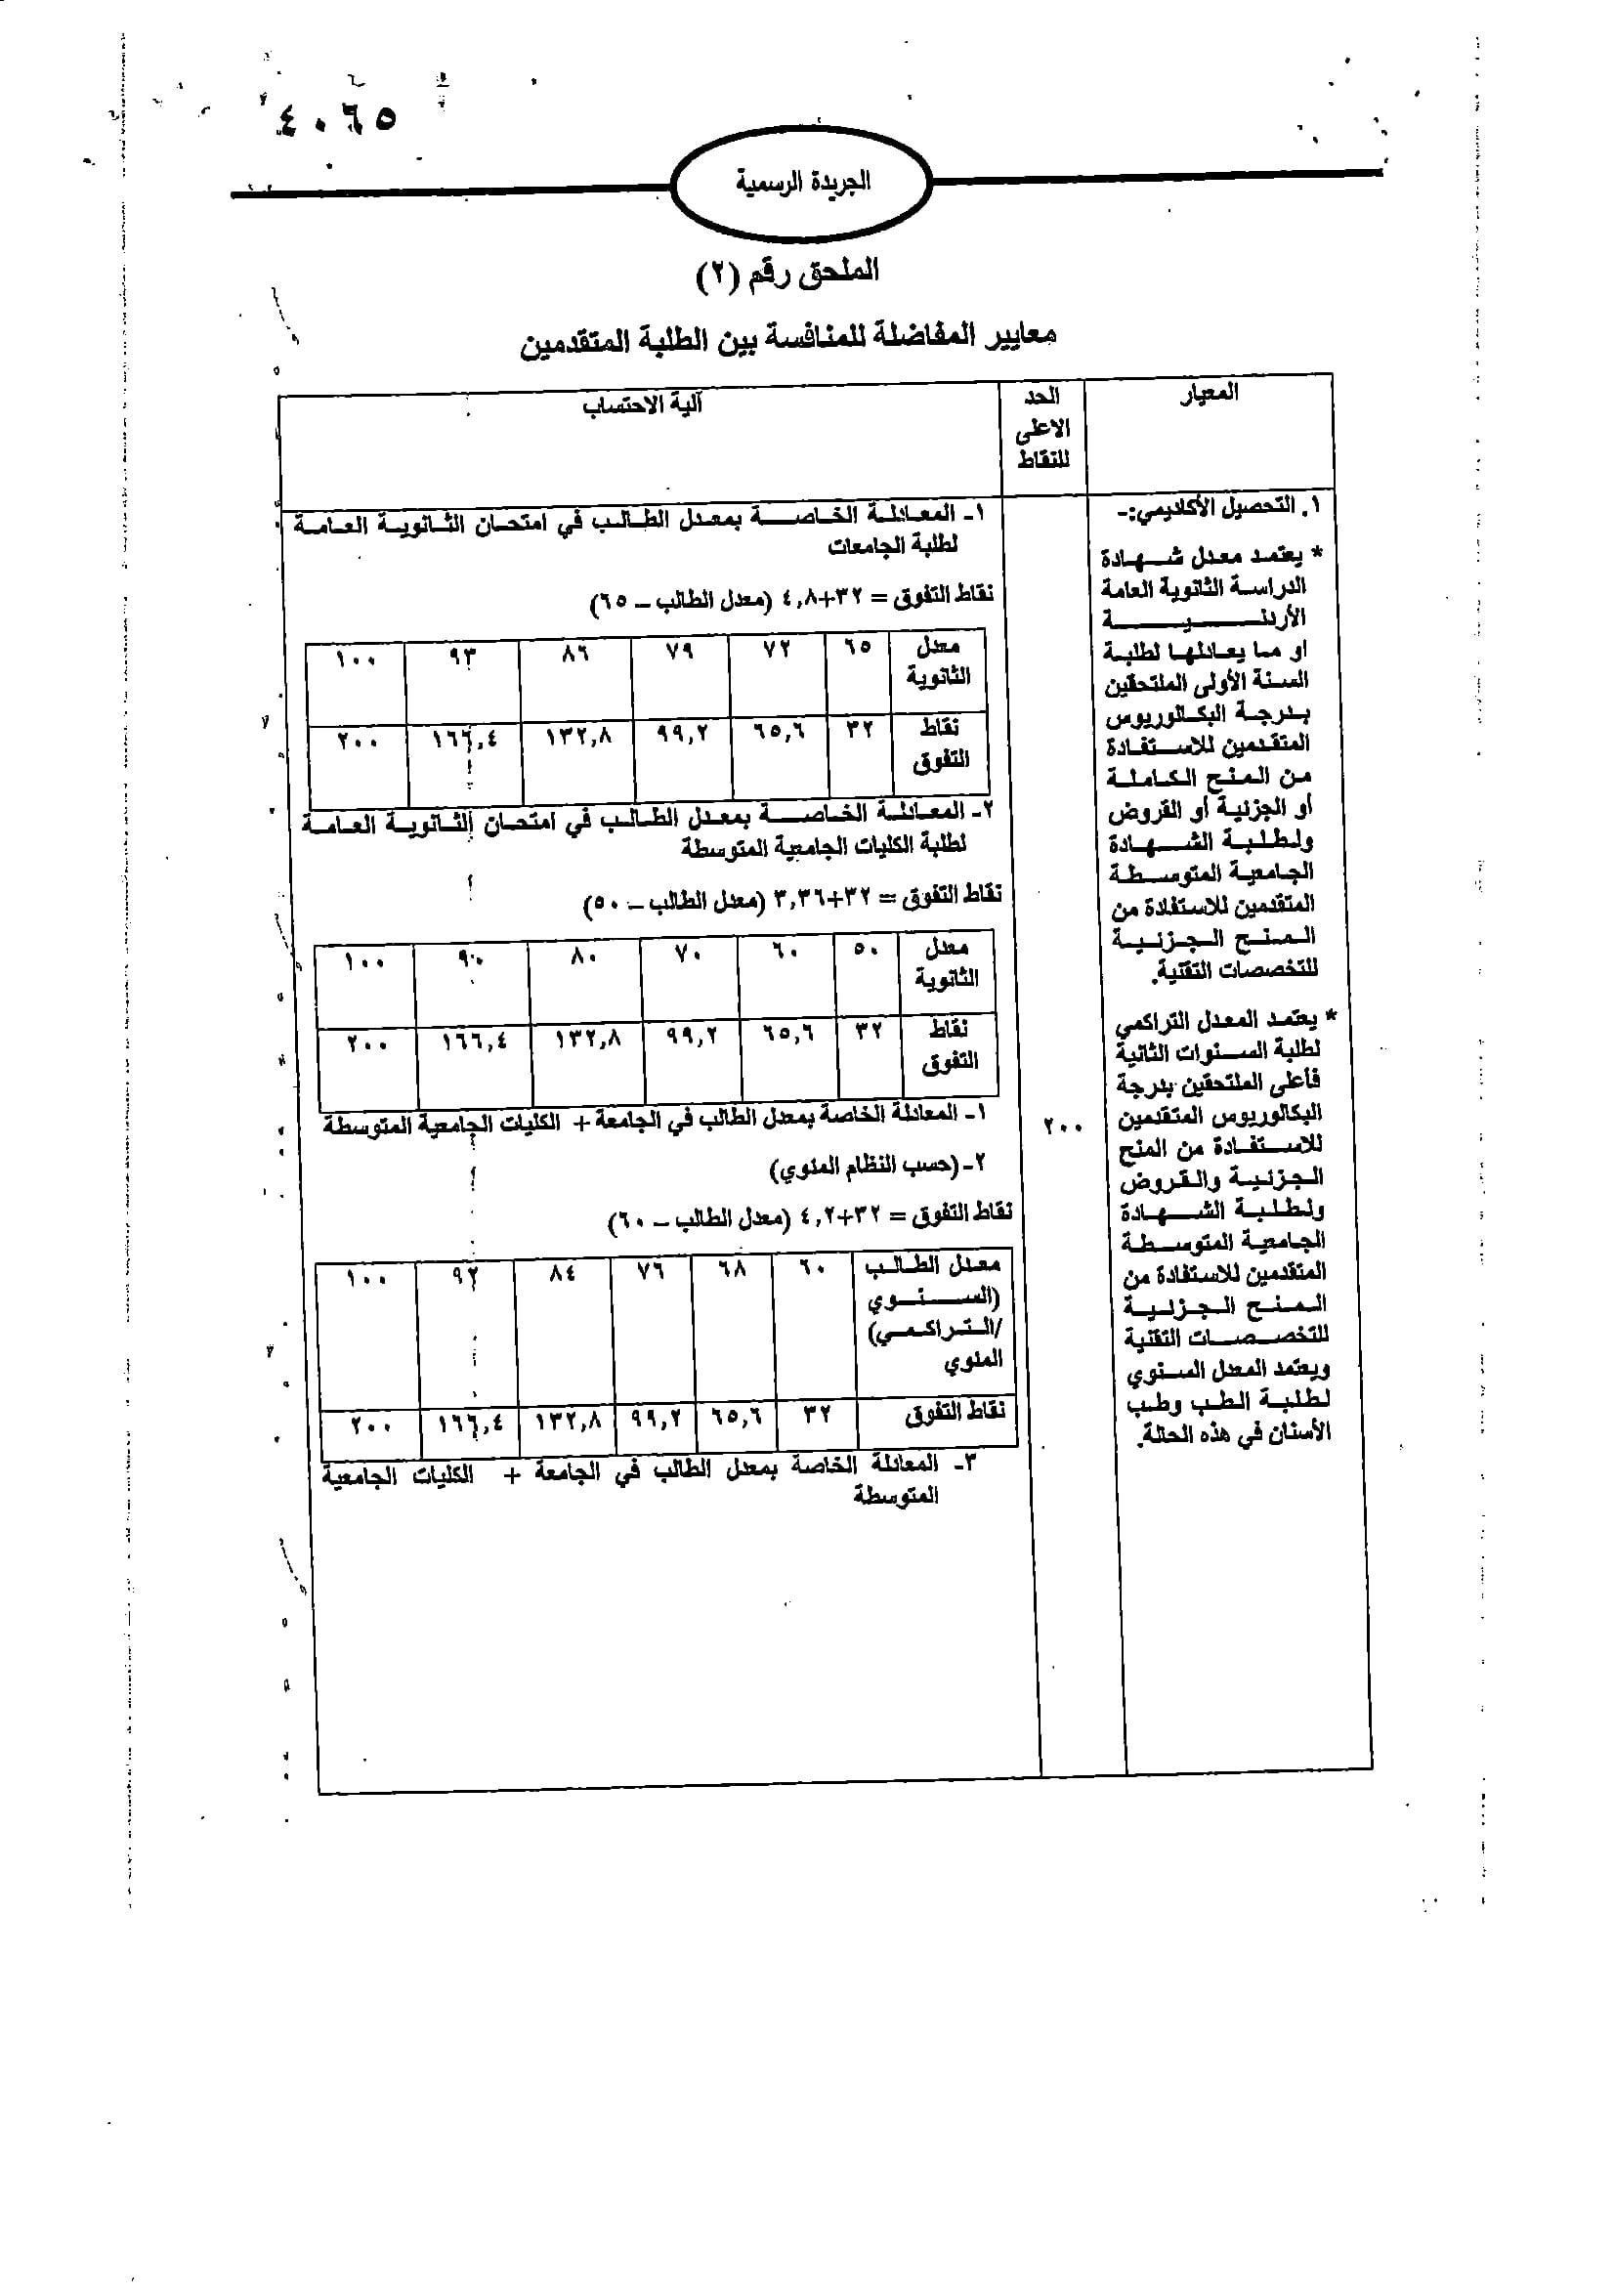 ٤٠٦٥
الجريدة الرسمية
الملحق رقم (٢)
معايير المفاضلة للمنافسة بين الطلبة المتقدمين
المعيار
الحد
الاعلى
للنقاط
آلية الاحتساب
١. التحصيل الأكاديمي:-
* يعتمد معدل شهادة
الدراسة الثانوية العامة
الأردنية
او ما يعادلها لطلبة
السنة الأولى الملتحقين
بدرجة البكالوريوس
المتقدمين للاستفادة
من المنح الكاملة
أو الجزئية أو القروض
ولطلبة الشهادة
الجامعية المتوسطة
المتقدمين للاستفادة من
المنح الجزئية
للتخصصات التقنية.
* يعتمد المعدل التراكمي
لطلبة السنوات الثانية
فأعلى الملتحقين بدرجة
البكالوريوس المتقدمين
للاستفادة من المنح
الجزئية والقروض
ولطلبة الشهادة
الجامعية المتوسطة
المتقدمين للاستفادة من
المنح الجزئية
للتخصصات التقنية
ويعتمد المعدل السنوي
لطلبة الطب وطب
الأسنان في هذه الحالة.
٢٠٠
١- المعادلة الخاصة بمعدل الطالب في امتحان الثانوية العامة
لطلبة الجامعات
نقاط التفوق = ٣٢+٤,٨ (معدل الطالب – ٦٥)
معدل الثانوية ٦٥ ٧٢ ٧٩ ٨٦ ٩٣ ١٠٠
نقاط التفوق ٣٢ ٦٥,٦ ٩٩,٢ ١٣٢,٨ ١٦٦,٤ ٢٠٠
٢- المعادلة الخاصة بمعدل الطالب في امتحان الثانوية العامة
لطلبة الكليات الجامعية المتوسطة
نقاط التفوق = ٣٢+٣,٣٦ (معدل الطالب – ٥٠)
معدل الثانوية ٥٠ ٦٠ ٧٠ ٨٠ ٩٠ ١٠٠
نقاط التفوق ٣٢ ٦٥,٦ ٩٩,٢ ١٣٢,٨ ١٦٦,٤ ٢٠٠
١- المعادلة الخاصة بمعدل الطالب في الجامعة + الكليات الجامعية المتوسطة
٢- (حسب النظام المئوي)
نقاط التفوق = ٣٢+٤,٢ (معدل الطالب – ٦٠)
معدل الطالب (السنوي /التراكمي) المئوي ٦٠ ٦٨ ٧٦ ٨٤ ٩٢ ١٠٠
نقاط التفوق ٣٢ ٦٥,٦ ٩٩,٢ ١٣٢,٨ ١٦٦,٤ ٢٠٠
٣- المعادلة الخاصة بمعدل الطالب في الجامعة + الكليات الجامعية
المتوسطة